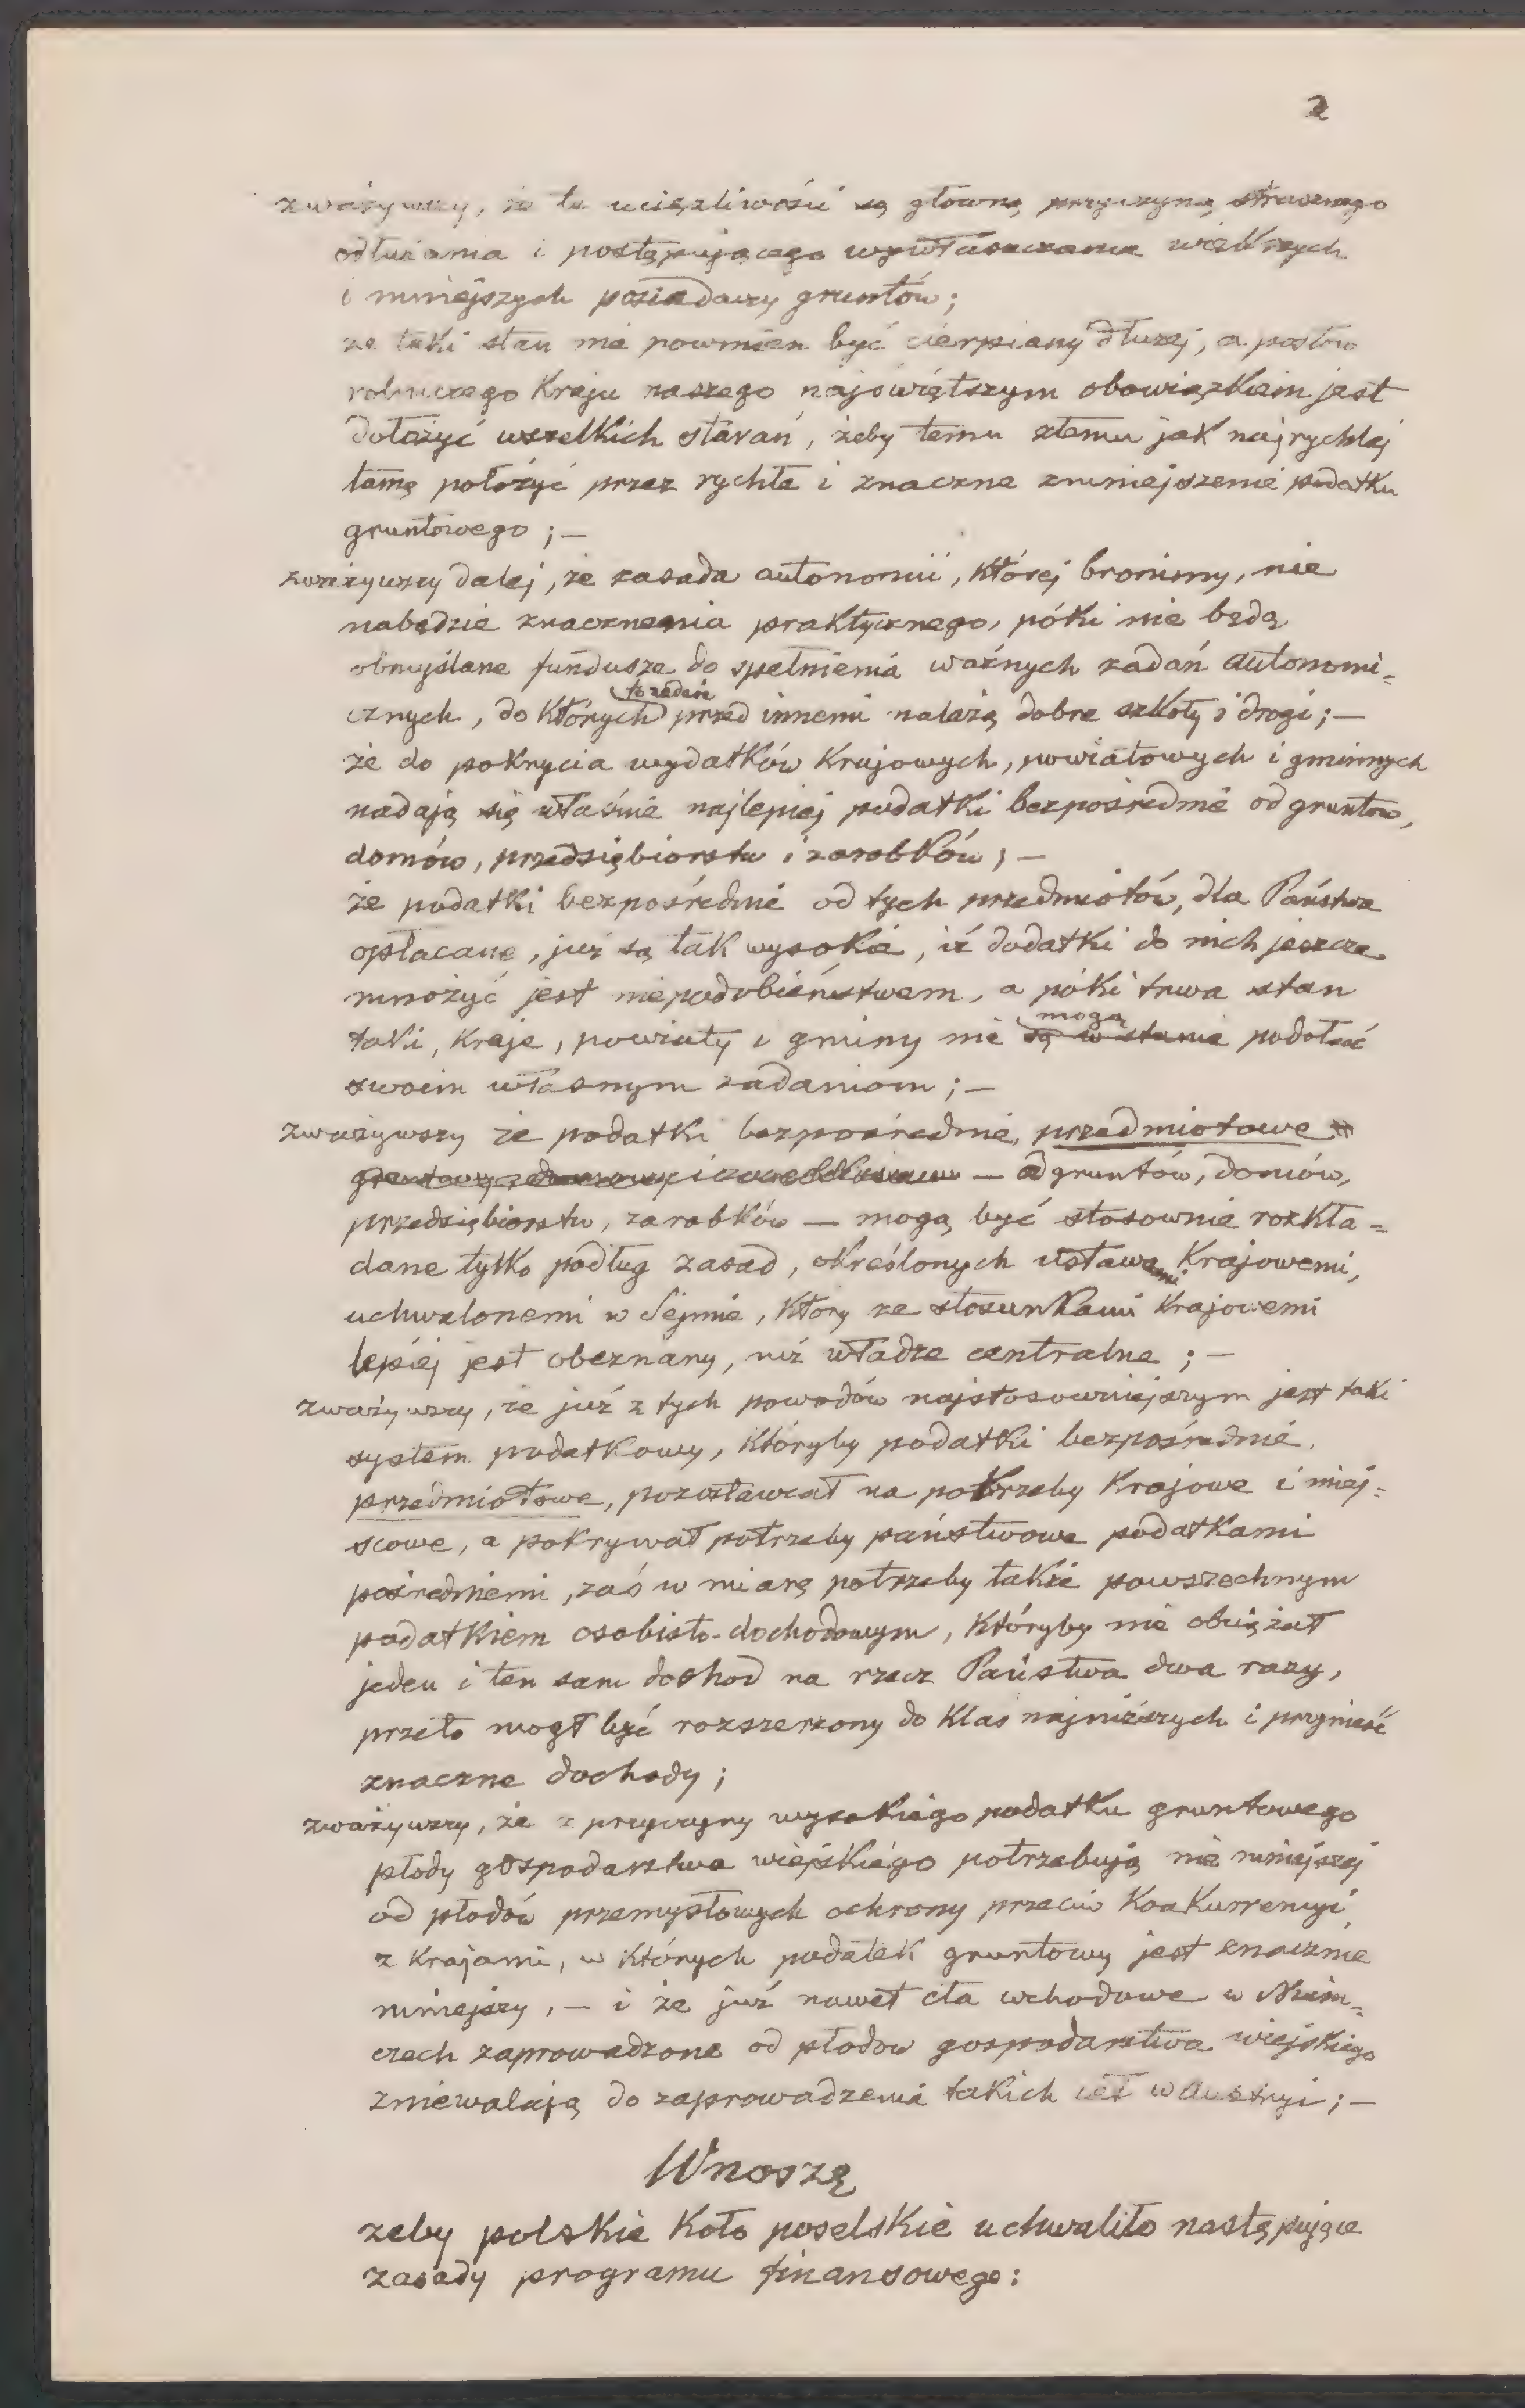 2
zważywszy, że te uciążliwości są główną przyczyną strasznego
odłużania i postępującego wywłaszczania większych
i mniejszych posiadaczy gruntów;
że taki stan nie powinien być cierpiany dłużej, a posłów
rolniczego Kraju naszego najświętszym obowiązkiem jest
dołożyć wszelkich starań, żeby temu złemu jak najrychlej
tamę położyć przez rychłe i znaczne zmniejszenie podatku
gruntowego; —
zważywszy dalej, że zasada autonomii, której bronimy, nie
nabędzie znaczenia praktycznego, póki nie będą
obmyślane fundusze do spełnienia ważnych zadań autonomi=
cznych, do których to zadań przed innemi należą dobre szkoły i drogi; —
że do pokrycia wydatków Krajowych, powiatowych i gminnych
nadają się właśnie najlepiej podatki bezpośrednie od gruntów,
domów, przedsiębiorstw i zarobków; —
że podatki bezpośrednie od tych przedmiotów, dla Państwa
opłacane, już są tak wysokie, iż dodatki do nich jeszcze
mnożyć jest niepodobieństwem, a póki trwa stan
taki, Kraje, powiaty i gminy nie są w stanie mogą podołać
swoim własnym zadaniom; —
zważywszy że podatki bezpośrednie, przedmiotowe
— od gruntów, domów,
przedsiębiorstw, zarobków — mogą być stosownie rozkła=
dane tylko podług zasad, określonych ustawami Krajowemi,
uchwalonemi w Sejmie, który ze stosunkami Krajowemi
lepiej jest obeznany, niż władze centralne; —
zważywszy, że już z tych powodów najstosowniejszym jest taki
system podatkowy, któryby podatki bezpośrednie,
przedmiotowe, pozostawiał na potrzeby Krajowe i miej=
scowe, a pokrywał potrzeby państwowe podatkami
pośredniemi, zaś w miarę potrzeby także powszechnym
podatkiem osobisto-dochodowym, któryby nie obciążał
jeden i ten sam dochod na rzecz Państwa dwa razy,
przeto mogł być rozszerzony do Klas najniższych i przynieść
znaczne dochody;
zważywszy, że z przyczyny wysokiego podatku gruntowego
płody gospodarstwa wiejskiego potrzebują nie mniejszej
od płodów przemysłowych ochrony przeciw Konkurrencyi
z Krajami, w których podatek gruntowy jest znacznie
mniejszy, — i że już nawet cła wchodowe w Niem=
czech zaprowadzone od płodow gospodarstwa wiejskiego
zniewalają do zaprowadzenia takich ceł w Austryi; —
Wnoszę
żeby polskie Koło poselskie uchwaliło następujące
zasady programu finansowego: